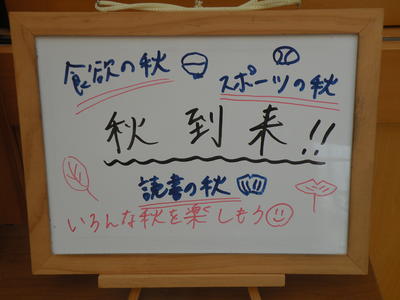 食欲の秋
スポーツの秋
秋到来!!
読書の秋
いろんな秋を楽しもう